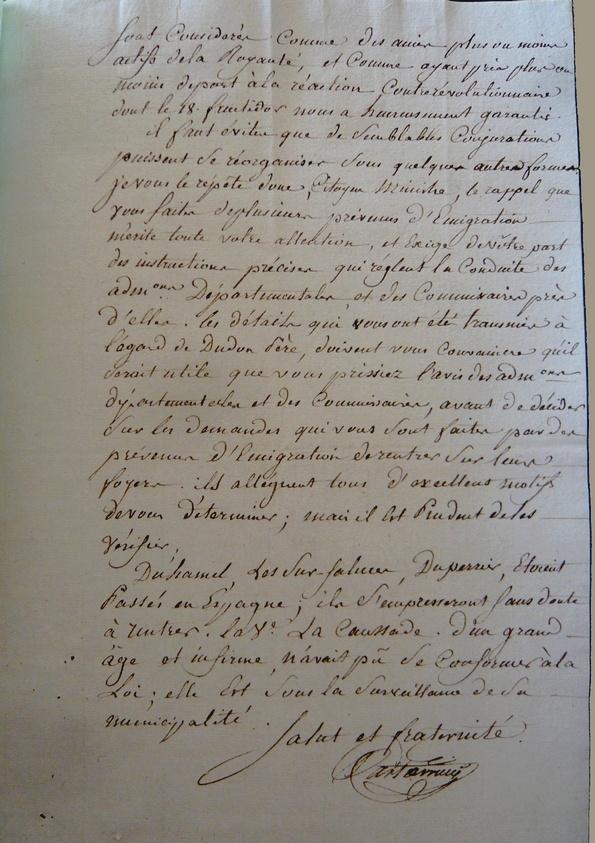 sont Considerés Comme des amis plus ou moins
actifs de la Royauté, et Comme ayant pris plus ou
moins de part à la réaction Contrerévolutionnaire
dont le 18. fructidor nous a heureusement garantis.
il faut éviter que de Semblables Conjurations
puissent Se réorganiser Sous quelques autres formes
je vous le répète donc, Citoyen Ministre, le rappel que
vous faites de plusieurs prévenus d'Emigration
mérite toute votre attention, et Exige de vôtre part
des instructions précises qui réglent la Conduite des
admons Départementales et des Commissaires près
d'elles. les détails qui vous ont été transmis à
l'égard de Dudon Père, doivent vous Convaincre qu'il
serait utile que vous prissiez l'avis des admons
départementales et des Commissaires, avant de décider
Sur les demandes qui vous Sont faites par des
prévenus d'Emigration de rentrer Sur leurs
foyers. ils allèguent tous d'excellens motifs
de vous déterminer; mais il Est Prudent de les
vérifier.
Duhamel, Les Sur-Saluces, Duperrier, Etoient
Passés en Espagne; ils S'empresseront Sans doute
à rentrer. la Ve. La Caussade. d'un grand
âge et infirme, n'avait pû Se Conformer à la
Loi; elle Est Sous la Surveillance de Sa
municipalité.
Salut et fraternité.